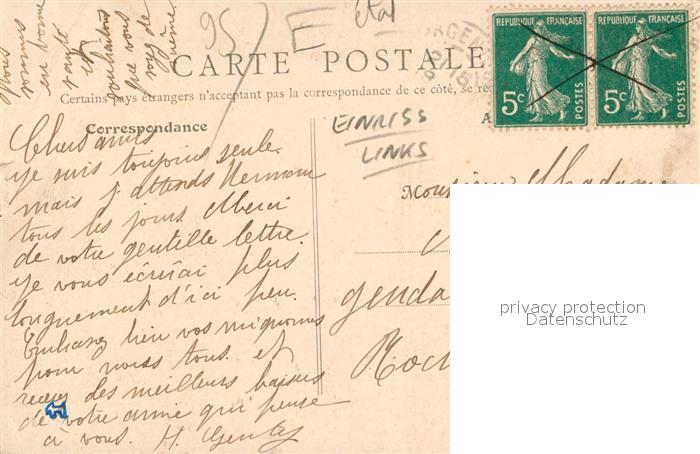 Nous
sommes
en bonne
santé
et
souhaitons
que vous
soyez de
même
95
E
état
RÉPUBLIQUE FRANÇAISE
5c
POSTES
RÉPUBLIQUE FRANÇAISE
5c
POSTES
CARTE POSTALE
Certains pays étrangers n'acceptant pas la correspondance de ce côté, se re
Correspondance
EINRISS
LINKS
Chers amis
Je suis toujours seule
mais j'attends
tous les jours Merci
de votre gentille lettre.
Je vous écrirai plus
longuement d'ici peu.
Embrassez bien vos mignonnes
pour nous tous et
recevez des meilleurs baisers
de votre amie qui pense
à vous. H.
Monsieur Madame
genda
Roch
privacy protection
Datenschutz